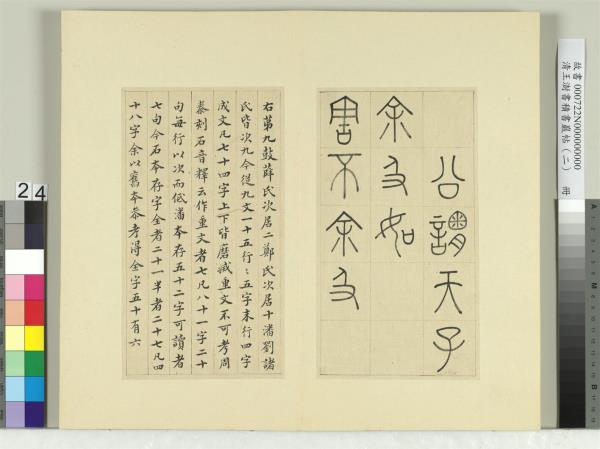 故書 000722N000000000
清王澍書積書巖帖（二） 冊
公謂天子
余及如
害不余及
右第九鼓薛氏次居二鄭氏次居十潘劉諸
氏皆次九今從九文一十五行〻五字末行四字
成文凡七十四字上下皆磨滅重文不可考周
秦刻石音釋云作重文者七凡八十一字二十
句每行以次而低潘本存五十二字可讀者
七句今石本存字全者二十一半者二十七凡四
十八字余以舊本參考得全字五十有六
24